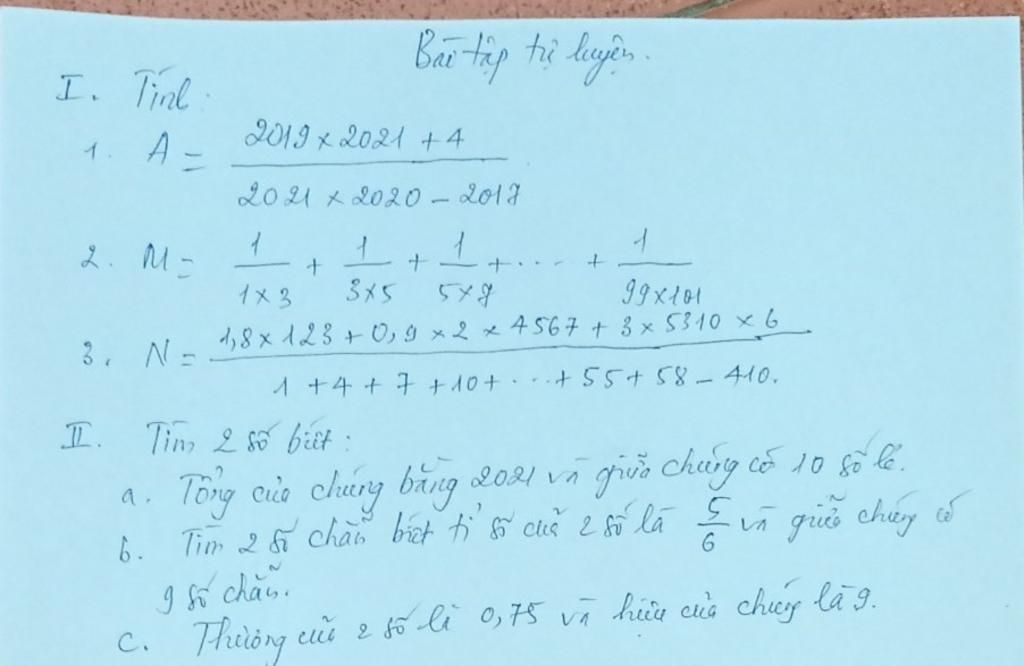 Bài tập tự luyện.
I. Tính:
1. A = (2019 x 2021 + 4) / (2021 x 2020 - 2017)
2. M = 1/(1x3) + 1/(3x5) + 1/(5x7) + .... + 1/(99x101)
3. N = (1,8 x 123 + 0,9 x 2 x 4567 + 3 x 5310 x 6) / (1 + 4 + 7 + 10 + ... + 55 + 58 - 410.)
II. Tìm 2 số biết:
a. Tổng của chúng bằng 2021 và giữa chúng có 10 số lẻ.
b. Tìm 2 số chẵn biết tỉ số của 2 số là 5/6 và giữa chúng có
9 số chẵn.
c. Thương của 2 số là 0,75 và hiệu của chúng là 9.